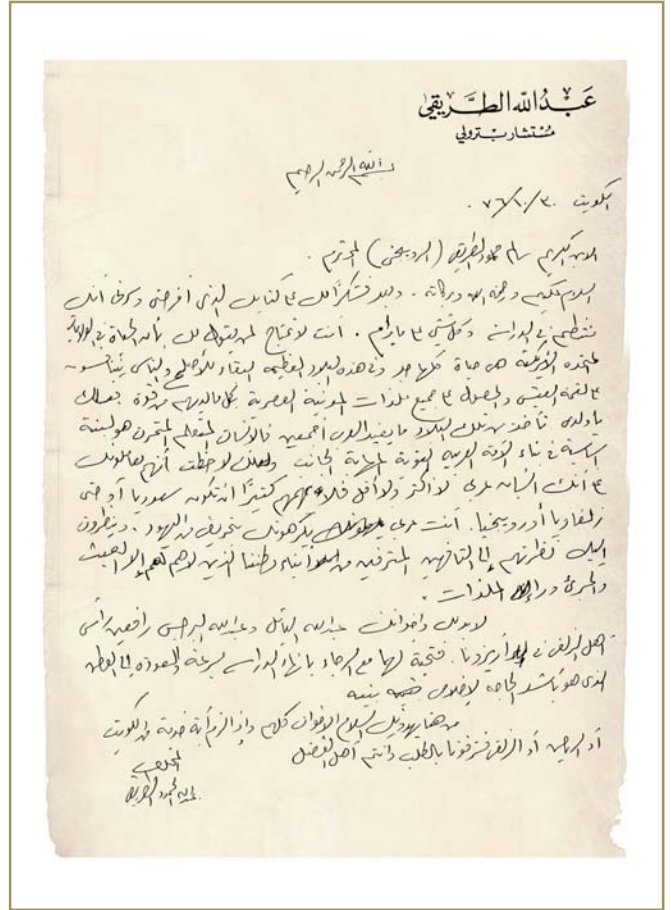 عبدالله الطريقي
مستشار بترولي
بسم الله الرحمن الرحيم
الكويت ٧٦/١٠/٣٠.
الابن الكريم سالم حمود الطريقي ( ) المحترم.
السلام عليكم ورحمة الله وبركاته. وبعد فشكرًا لك على كتابك الذي أفرحني وسرني أنك
منتظم في الدراسة وكل شيء على ما يرام. أنت لا تحتاج لمن يقول لك بأن الحياة في الولايات
المتحدة الأمريكية هي حياة كلها جد وفي هذه البلاد العظيمة البقاء للأصلح والناس يتنافسون
على لقمة العيش والحصول على جميع ملذات المدنية العصرية بكل ما لديهم من قوة فعساك
يا ولدي تأخذ من تلك البلاد ما يفيد العرب أجمعين فالانسان المتعلم المتمرن هو لبنة
أساسية في بناء الأمة العربية القوية المهابة الجانب ولعلك لاحظت أنهم يعاملونك
على أنك انسان عربي لا أكثر ولا أقل فلا يهمهم كثيرًا ان تكون سعوديا أو حتى
زلفاويا أو رويجخيا. أنت عربي يكرهونك بتحريض من اليهود. وينظرون
إليك نظرتهم إلى التافهين المترفين من أبناء وطننا الذين لا هم لهم إلا العبث
والجري وراء الملذات.
لا بد لك واخوانك عبدالله و عبدالله رافعين رأس
أهل الزلفي في أريزونا. فتحية لهما مع الرجاء بانهاء الدراسة بسرعة والعودة إلى الوطن
الذي هو بأشد الحاجة لإخلاص بنيه
من هنا يهدونك السلام الاخوان كلهم وإذا لزم أية خدمة من الكويت
أو الرياض أو الزلفي فشرفونا بالطلب وانتم أهل الفضل
المخلص
عبدالله الحمود الطريقي